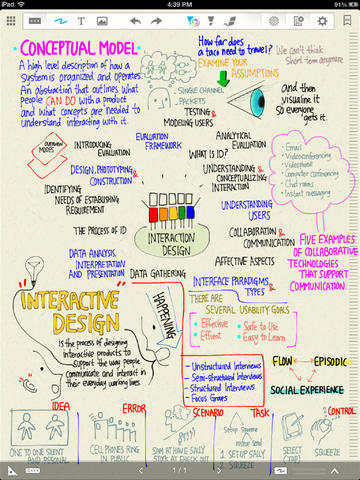 iPad
4:39 PM
91%
• CONCEPTUAL MODEL •
A high level description of how a
System is organized and operates.
An abstraction that outlines what
people CAN DO with a product
and what concepts are needed to
understand interacting with it.
How far does
a taco need to travel?
EXAMINE YOUR
ASSUMPTIONS
We can't think
Short term anymore
- SINGLE CHANNEL
- PACKETS
TESTING &
MODELING USERS
And then
visualize it
so everyone
gets it.
OVERVIEW
MODES
INTRODUCING
EVALUATION
EVALUATION
FRAMEWORK
ANALYTICAL
EVALUATION
WHAT IS ID?
DESIGN, PROTOTYPING &
CONSTRUCTION
UNDERSTANDING &
CONCEPTUALIZING
INTERACTION
IDENTIFYING
NEEDS OF ESTABLISHING
REQUIREMENT
UNDERSTANDING
USERS
THE PROCESS OF ID
INTERACTION
DESIGN
COLLABORATION &
COMMUNICATION
DATA ANALYSIS,
INTERPRETATION
AND PRESENTATION
DATA GATHERING
AFFECTIVE ASPECTS
INTERFACE PARADIGMS &
TYPES
• Email
• Videoconferencing
• Videophone
• Computer conferencing
• Chat rooms
• Instant messaging
FIVE EXAMPLES
OF COLLABORATIVE
TECHNOLOGIES
THAT SUPPORT
COMMUNICATION.
"INTERACTIVE
DESIGN"
is the process of designing
interactive products to
Support the way people
communicate and interact in
their everyday working lives
HAPPENING
THERE ARE
SEVERAL USABILITY GOALS
• Effective
• Efficient
• Safe to Use
• Easy to Learn
- Unstructured Interviews
- Semi-structured Interviews
- Structured Interviews
- Focus Groups
FLOW
EPISODIC
SOCIAL EXPERIENCE
IDEA
ERROR
SCENARIO
TASK
CONTROL
ONE TO ONE SILENT
CELL PHONES RING
IN PUBLIC
SAM AT HAVE SALLY
STOCK AT CHECK OUT
1 SET UP SALLY
2 SQUEEZE
SELECT
(TAP)
SQUEEZE
1/1